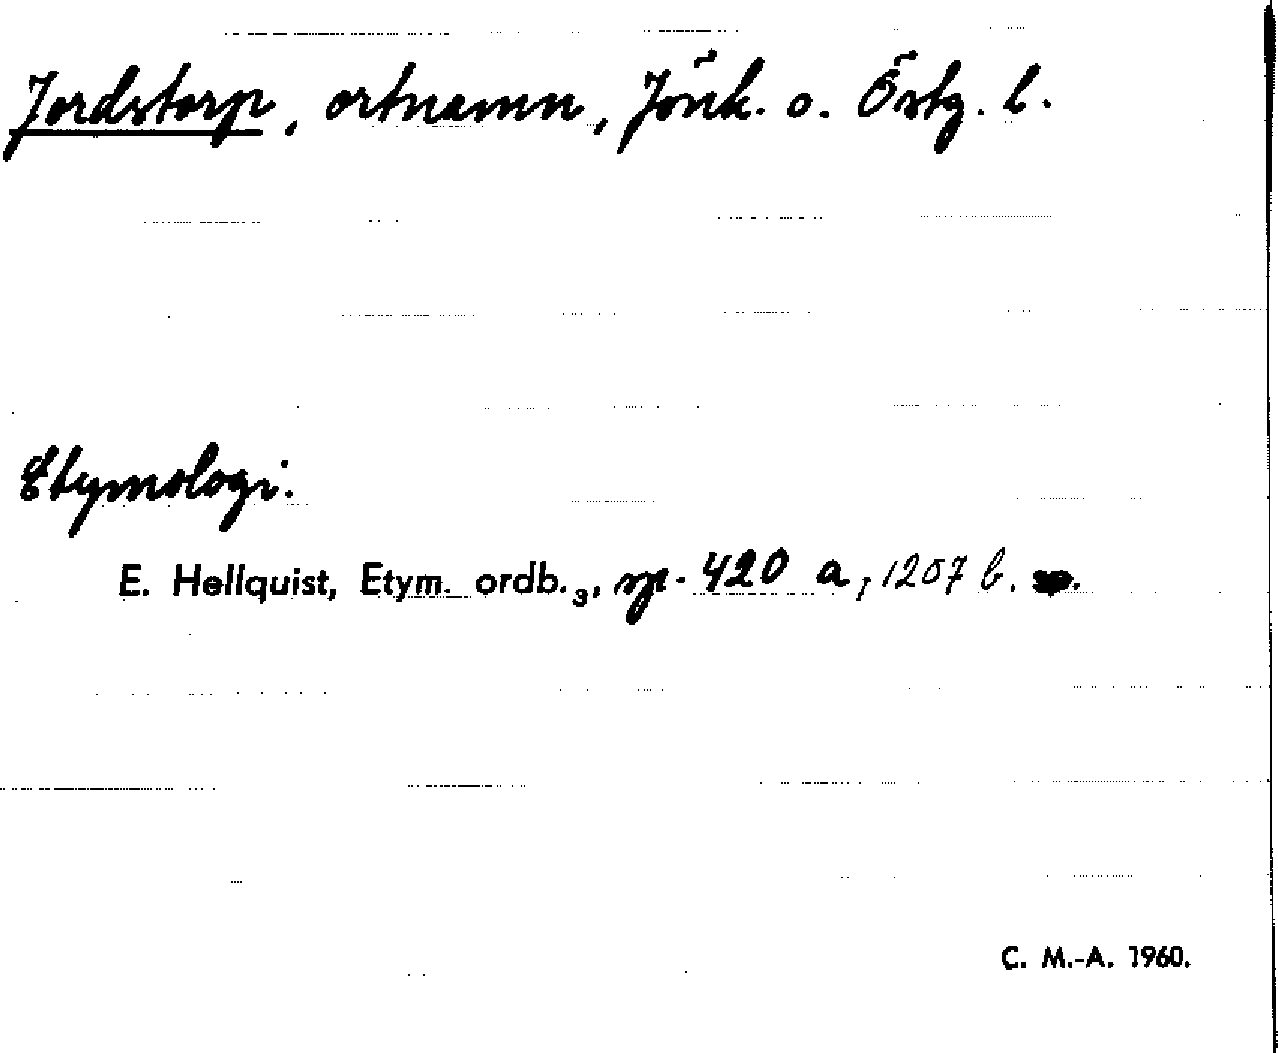 Jordstorp, ortnamn, Jönk. o. Östg. l.
Etymologi.
E. Hellquist, Etym. ordb.₃, sp. 420 a, 1207 b.
C. M.-A. 1960.